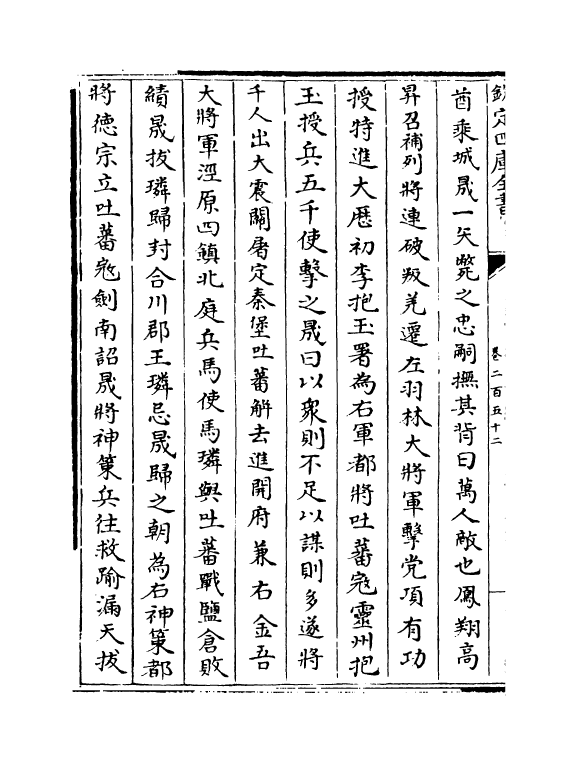 欽定四庫全書
卷二百五十二
酋乘城晟一矢斃之忠嗣撫其背曰萬人敵也鳳翔髙
昇召補列將連破叛羌遷左羽林大將軍擊党項有功
授特進大厯初李抱玉署為右軍都將吐蕃宼靈州抱
玉授兵五千使擊之晟曰以衆則不足以謀則多遂將
千人出大震關屠定秦堡吐蕃解去進開府兼右金吾
大將軍涇原四鎮北庭兵馬使馬璘與吐蕃戰鹽倉敗
績晟拔璘歸封合川郡王璘忌晟歸之朝為右神策都
將徳宗立吐蕃宼劍南詔晟將神策兵往救踰漏天拔